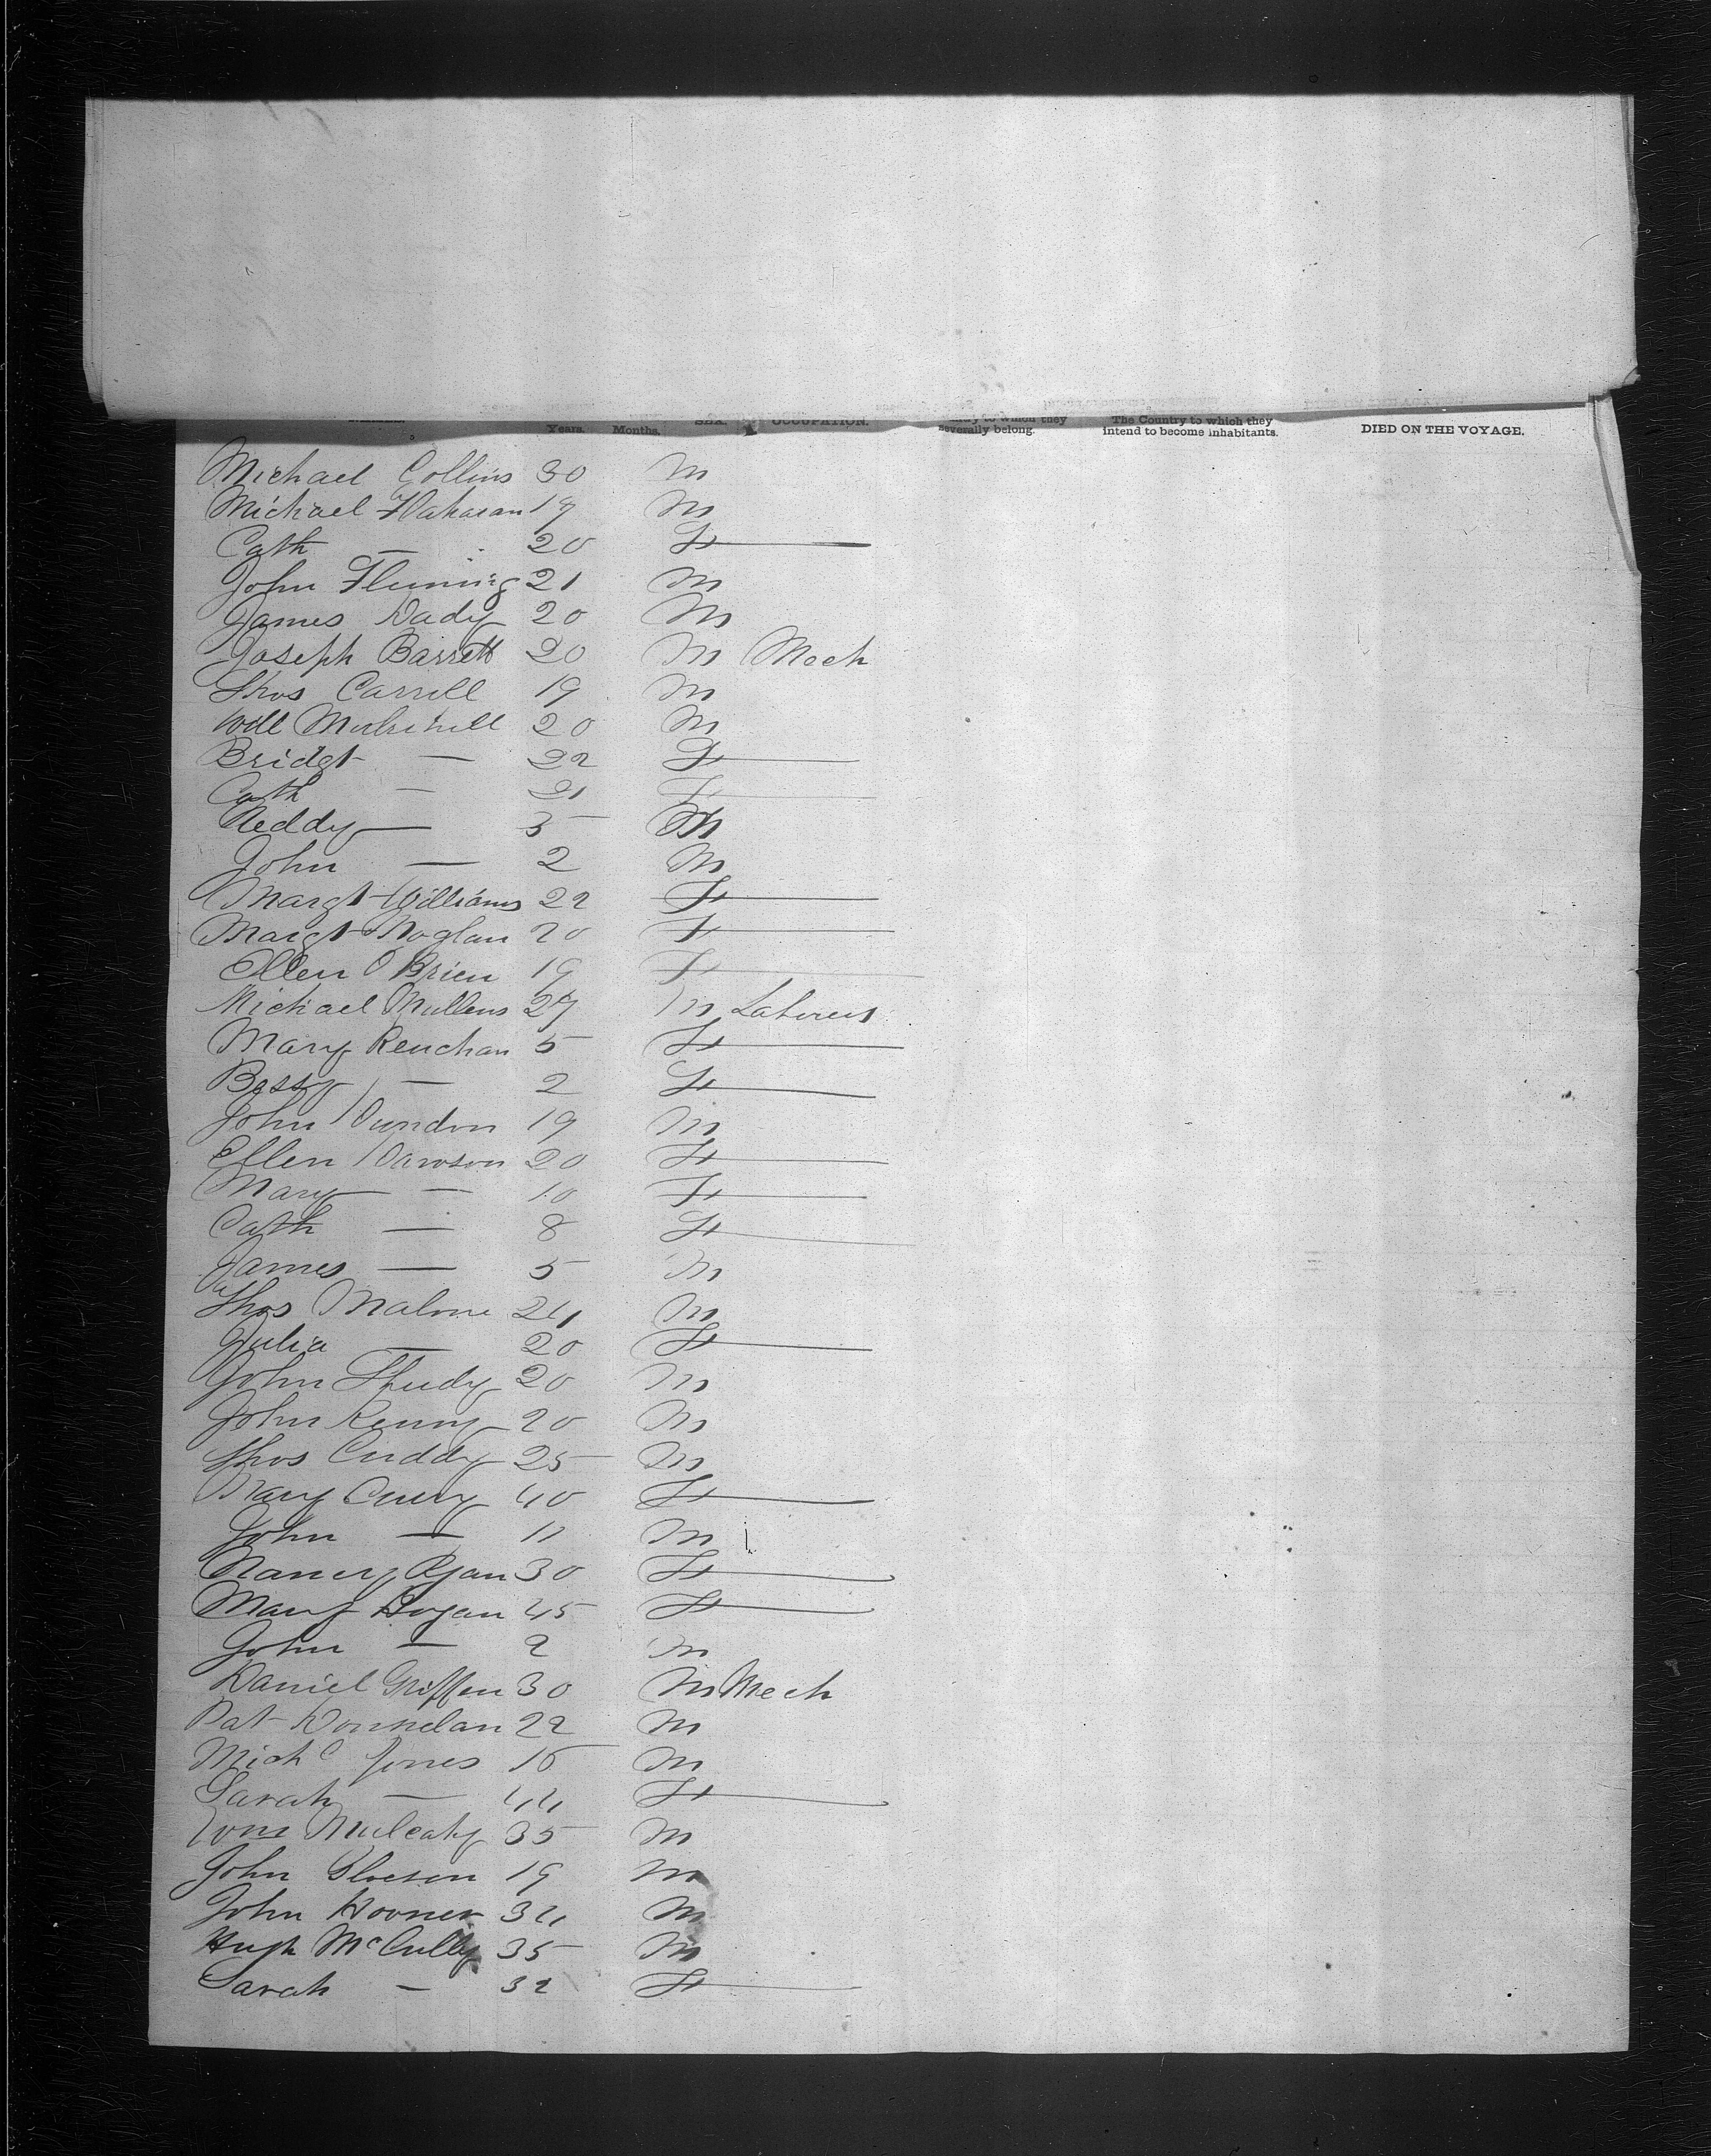 Years. Months. SEX. OCCUPATION. severally belong. The Country to which they intend to become inhabitants. DIED ON THE VOYAGE.
Michael Collins 30 M
Michael 19 M
Cath — 20 F
John Fleming 21 M
James Dady 20 M
Joseph Barrett 20 M Mech
Thos Carroll 19 M
Will Mulvihill 20 M
Bridgt — 22 F
Cath — 21 F
Neddy — 3 M
John — 2 M
Margt Williams 22 F
Margt 20 F
Ellen O'Brien 19 F
Michael Mullens 27 M Laborers
Mary 5 F
Bessy — 2 F
John Dundon 19 M
Ellen Dawson 20 F
Mary — 10 F
Cath — 8 F
James — 5 M
Thos Malone 24 M
Julia — 20 F
John 20 M
John Kenny 20 M
Thos Cuddy 25 M
Mary 40 F
John — 11 M
Nancy Ryan 30 F
Mary Hogan 45 F
John — 2 M
Daniel Griffen 30 M Mech
Pat Donnelan 22 M
Michl Jones 15 M
Sarah — 44 F
Mulcahy 35 M
John Gleeson 19 M
John 34 M
Hugh McCully 35 M
Sarah — 32 F